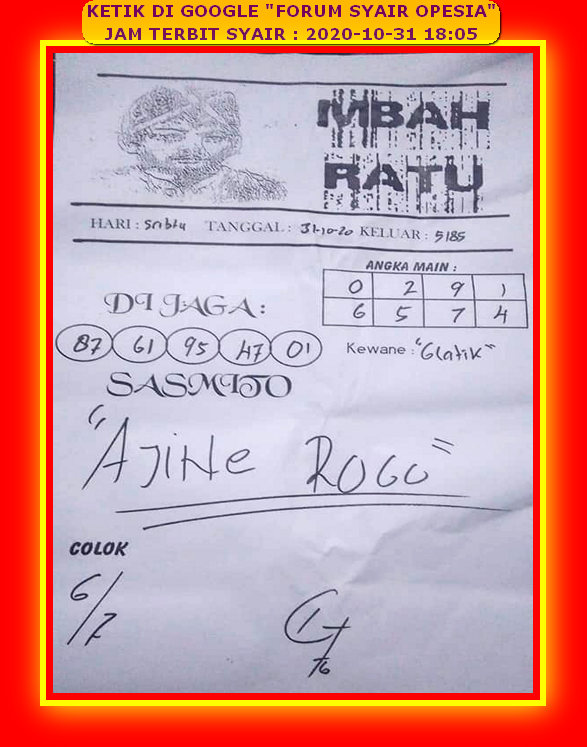 KETIK DI GOOGLE "FORUM SYAIR OPESIA"
JAM TERBIT SYAIR : 2020-10-31 18:05
MBAH
RATU
HARI : Sabtu TANGGAL : 31-10-20 KELUAR : 5185
ANGKA MAIN :
0 2 9 1
6 5 7 4
DI JAGA :
87 61 95 47 01
Kewane : "Glatik"
SASMITO
"AJINE ROGO"
COLOK
6/7
76